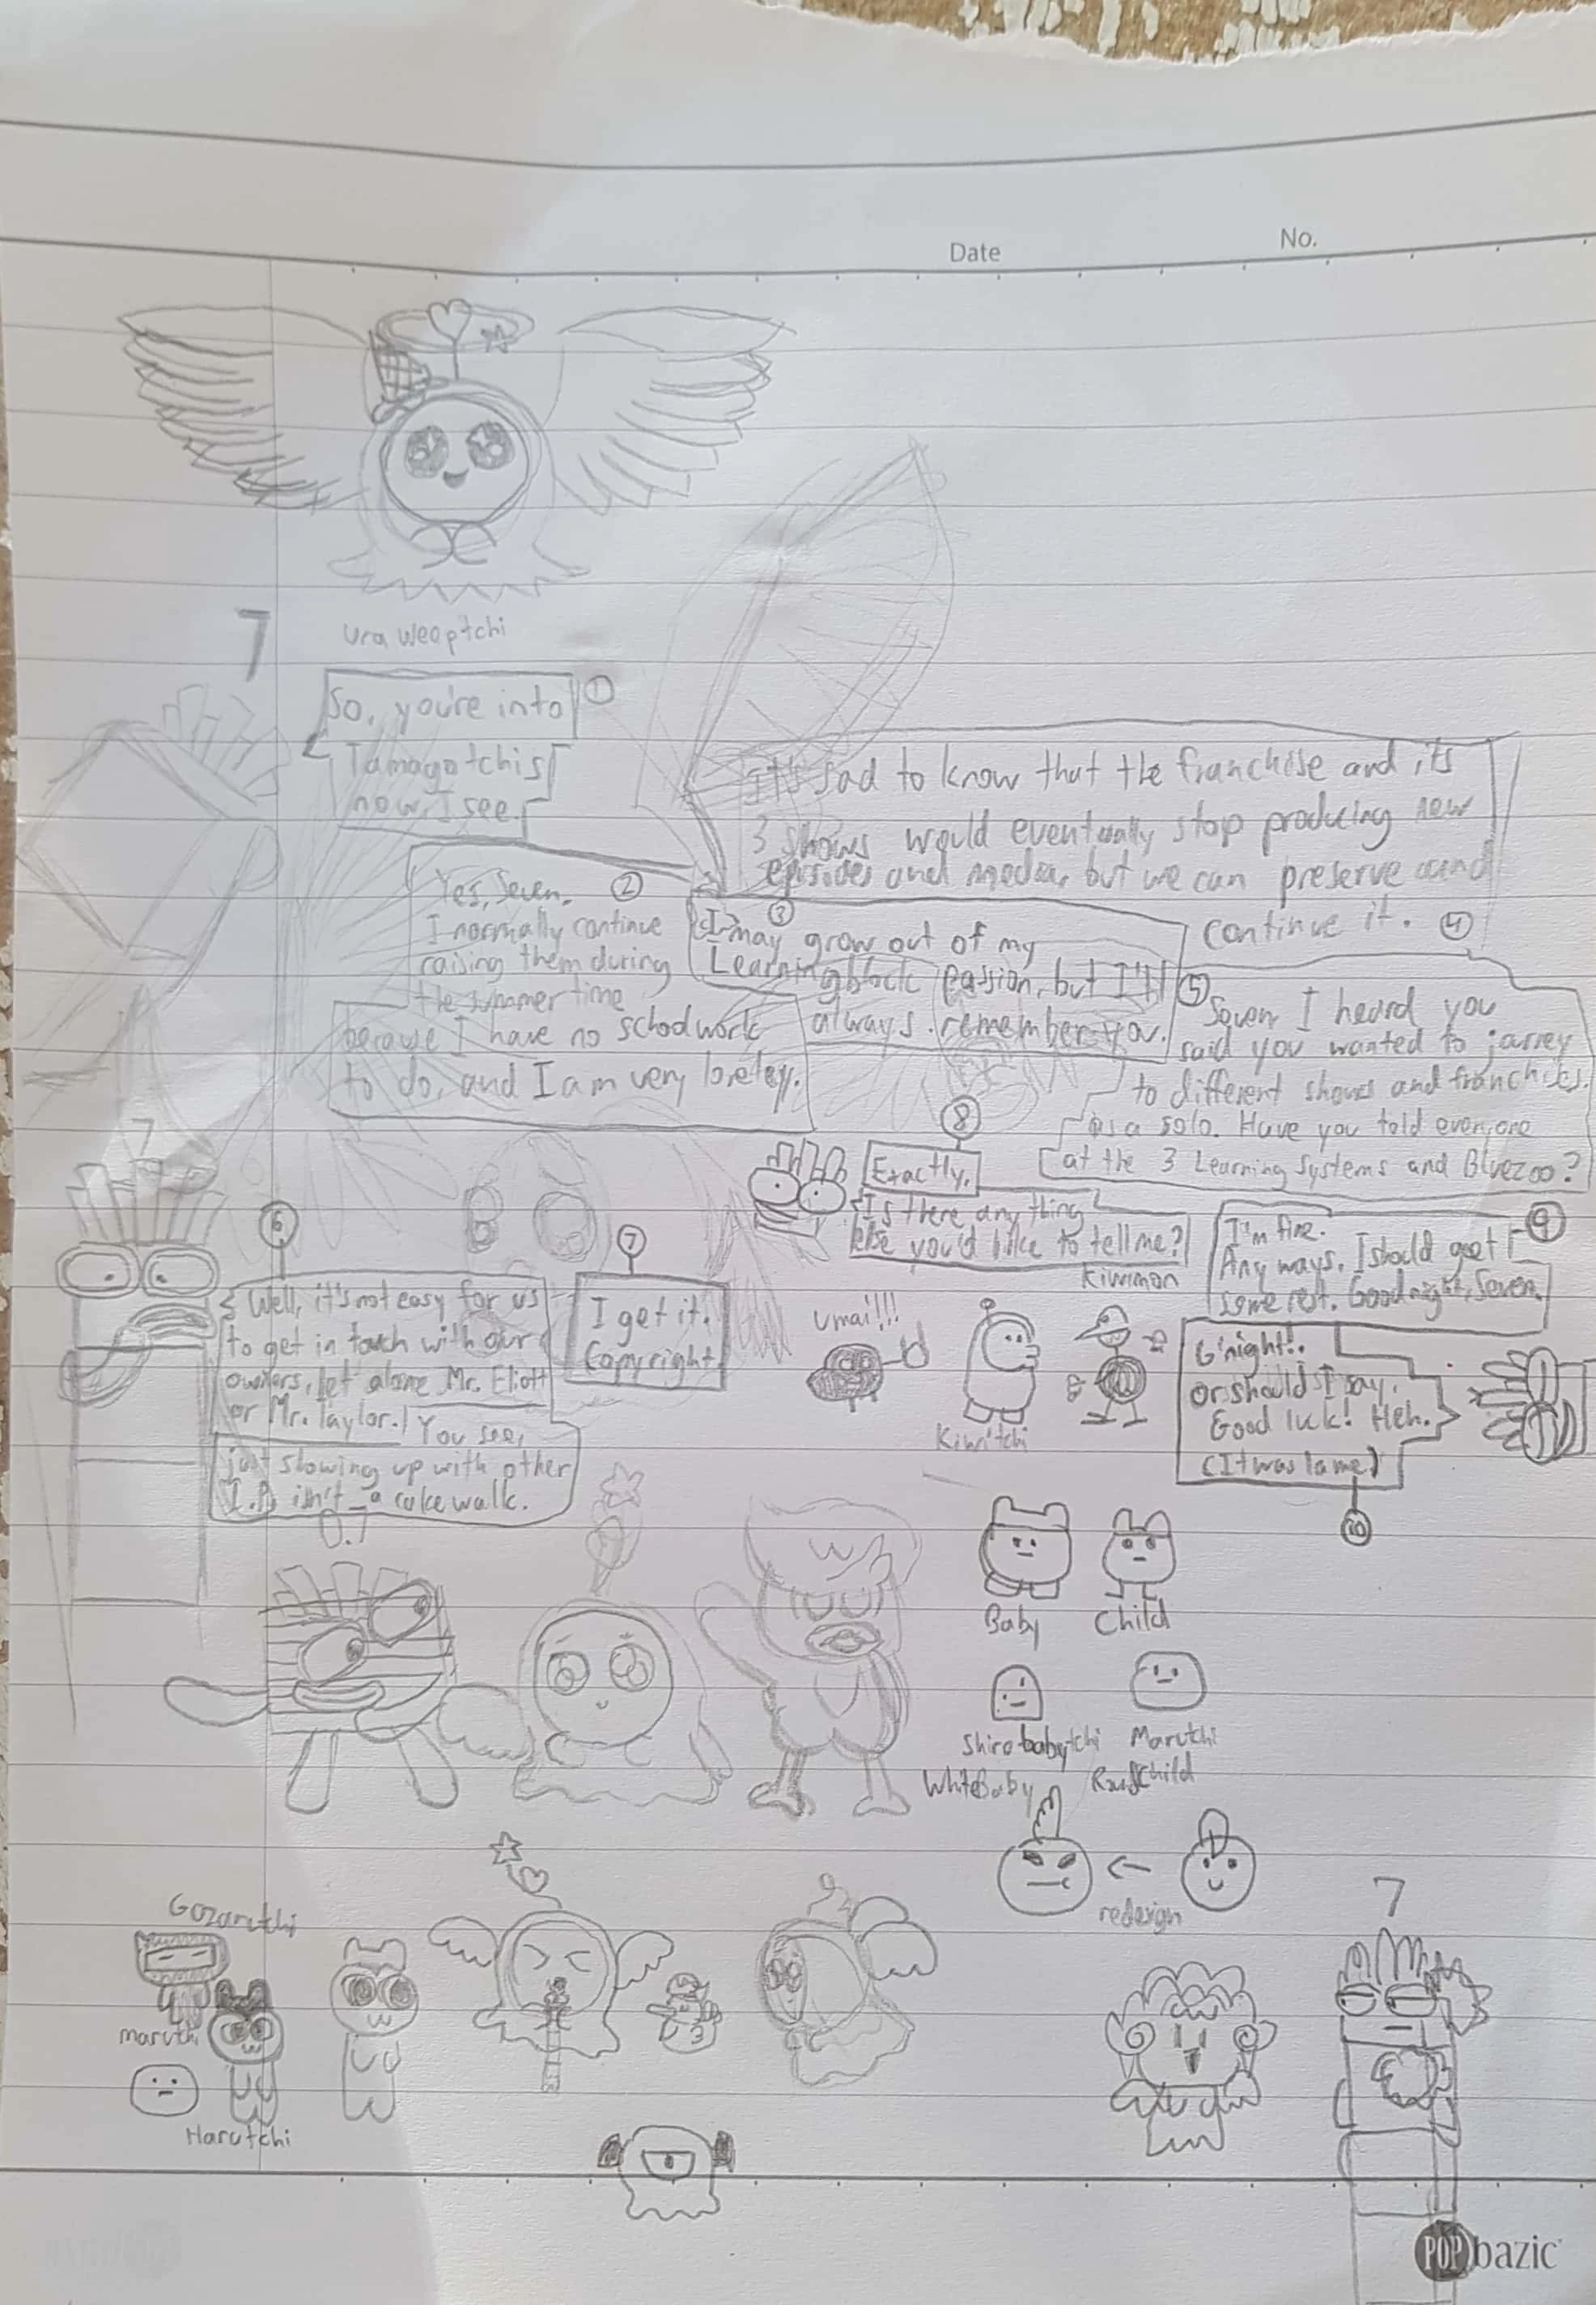 Date No.
Ura Weeptchi
7
So, you're into
Tamagotchis
now, I see.
1
Yes, Seven. 2
I normally continue
raising them during
the summer time
because I have no schoolwork
to do, and I am very loneley.
3
I may grow out of my
Learningblock passion, but I'll
always remember you.
It's sad to know that the franchise and its
3 shows would eventually stop producing new
episodes and media, but we can preserve and
continue it. 4
5
Seven I heard you
said you wanted to jorrey
to different shows and franchises
as a solo. Have you told everyone
at the 3 Learning Systems and Bluezoo?
7
6
Well, it's not easy for us
to get in touch with our
owners, let alone Mr. Eliott
or Mr. Taylor. You see,
just showing up with other
I.Ps isn't a cake walk.
7
I get it.
Copyright.
8
Exactly.
Is there anything
else you'd like to tell me?
9
I'm fine.
Any ways, I should get
some rest. Goodnight, Seven.
G'night!
Or should I say,
Good luck! Heh.
(It was lame)
10
Umai!!!
Kiwitchi
Kiwimon
0.7
Baby Child
Shirobabytchi Marutchi
WhiteBaby RoundChild
redesign
Gozarutchi
marutchi
Harutchi
7
POP bazic